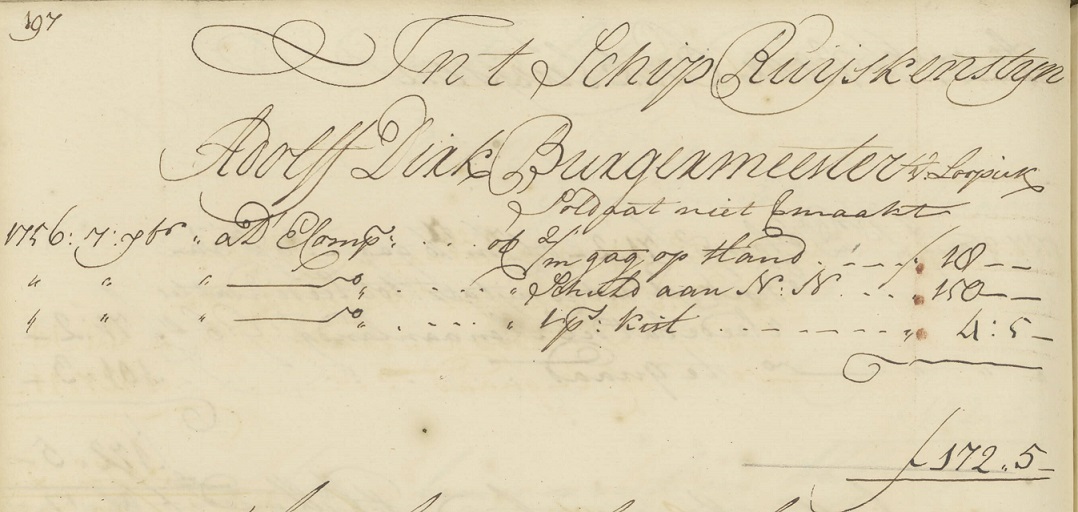 197
Int Schip Ruijskenstyn
Adolff Dirk Burgermeester V: Loopick
Soldaat niet gmaakt
1756: 7: 7br " aD' Comp: . . . . of 2/m gag: op Hand . - - - f 18 - -
" " " " . . . . " Schuld aan N: N . . . " 150 - -
" " " " . . . . " 1 p: kist . - - - - - - " 4 : 5 -
f 172 " 5 -